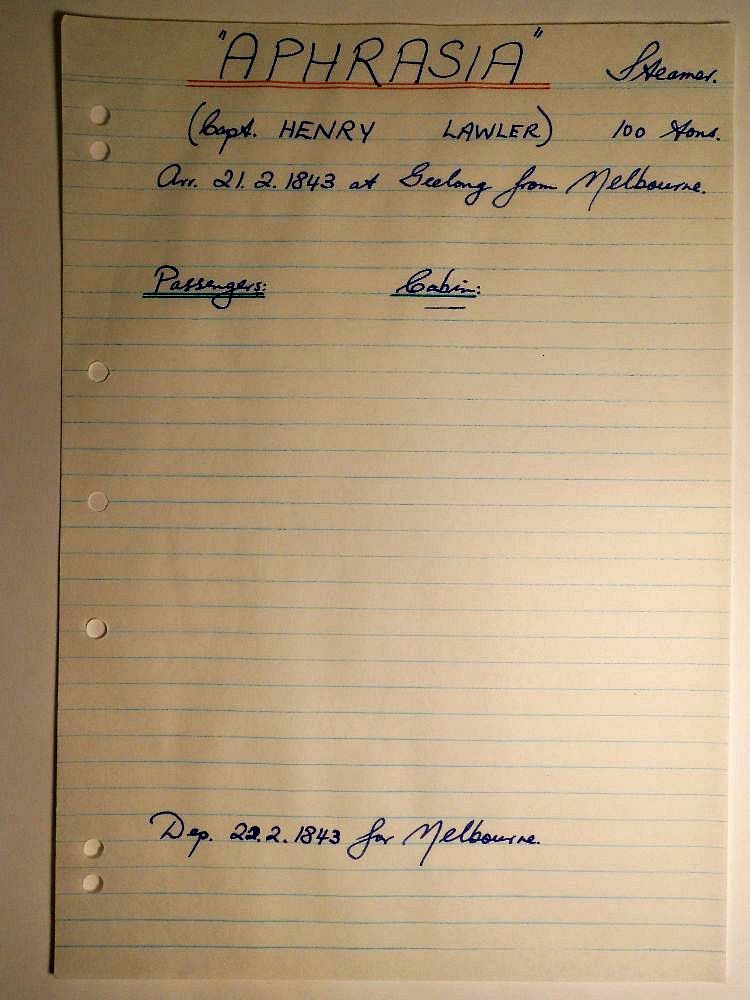 "APHRASIA" Steamer.
(Capt. HENRY LAWLER) 100 Tons.
Arr. 21.2.1843 at Geelong from Melbourne.
Passengers: Cabin:
Dep. 22.2.1843 for Melbourne.